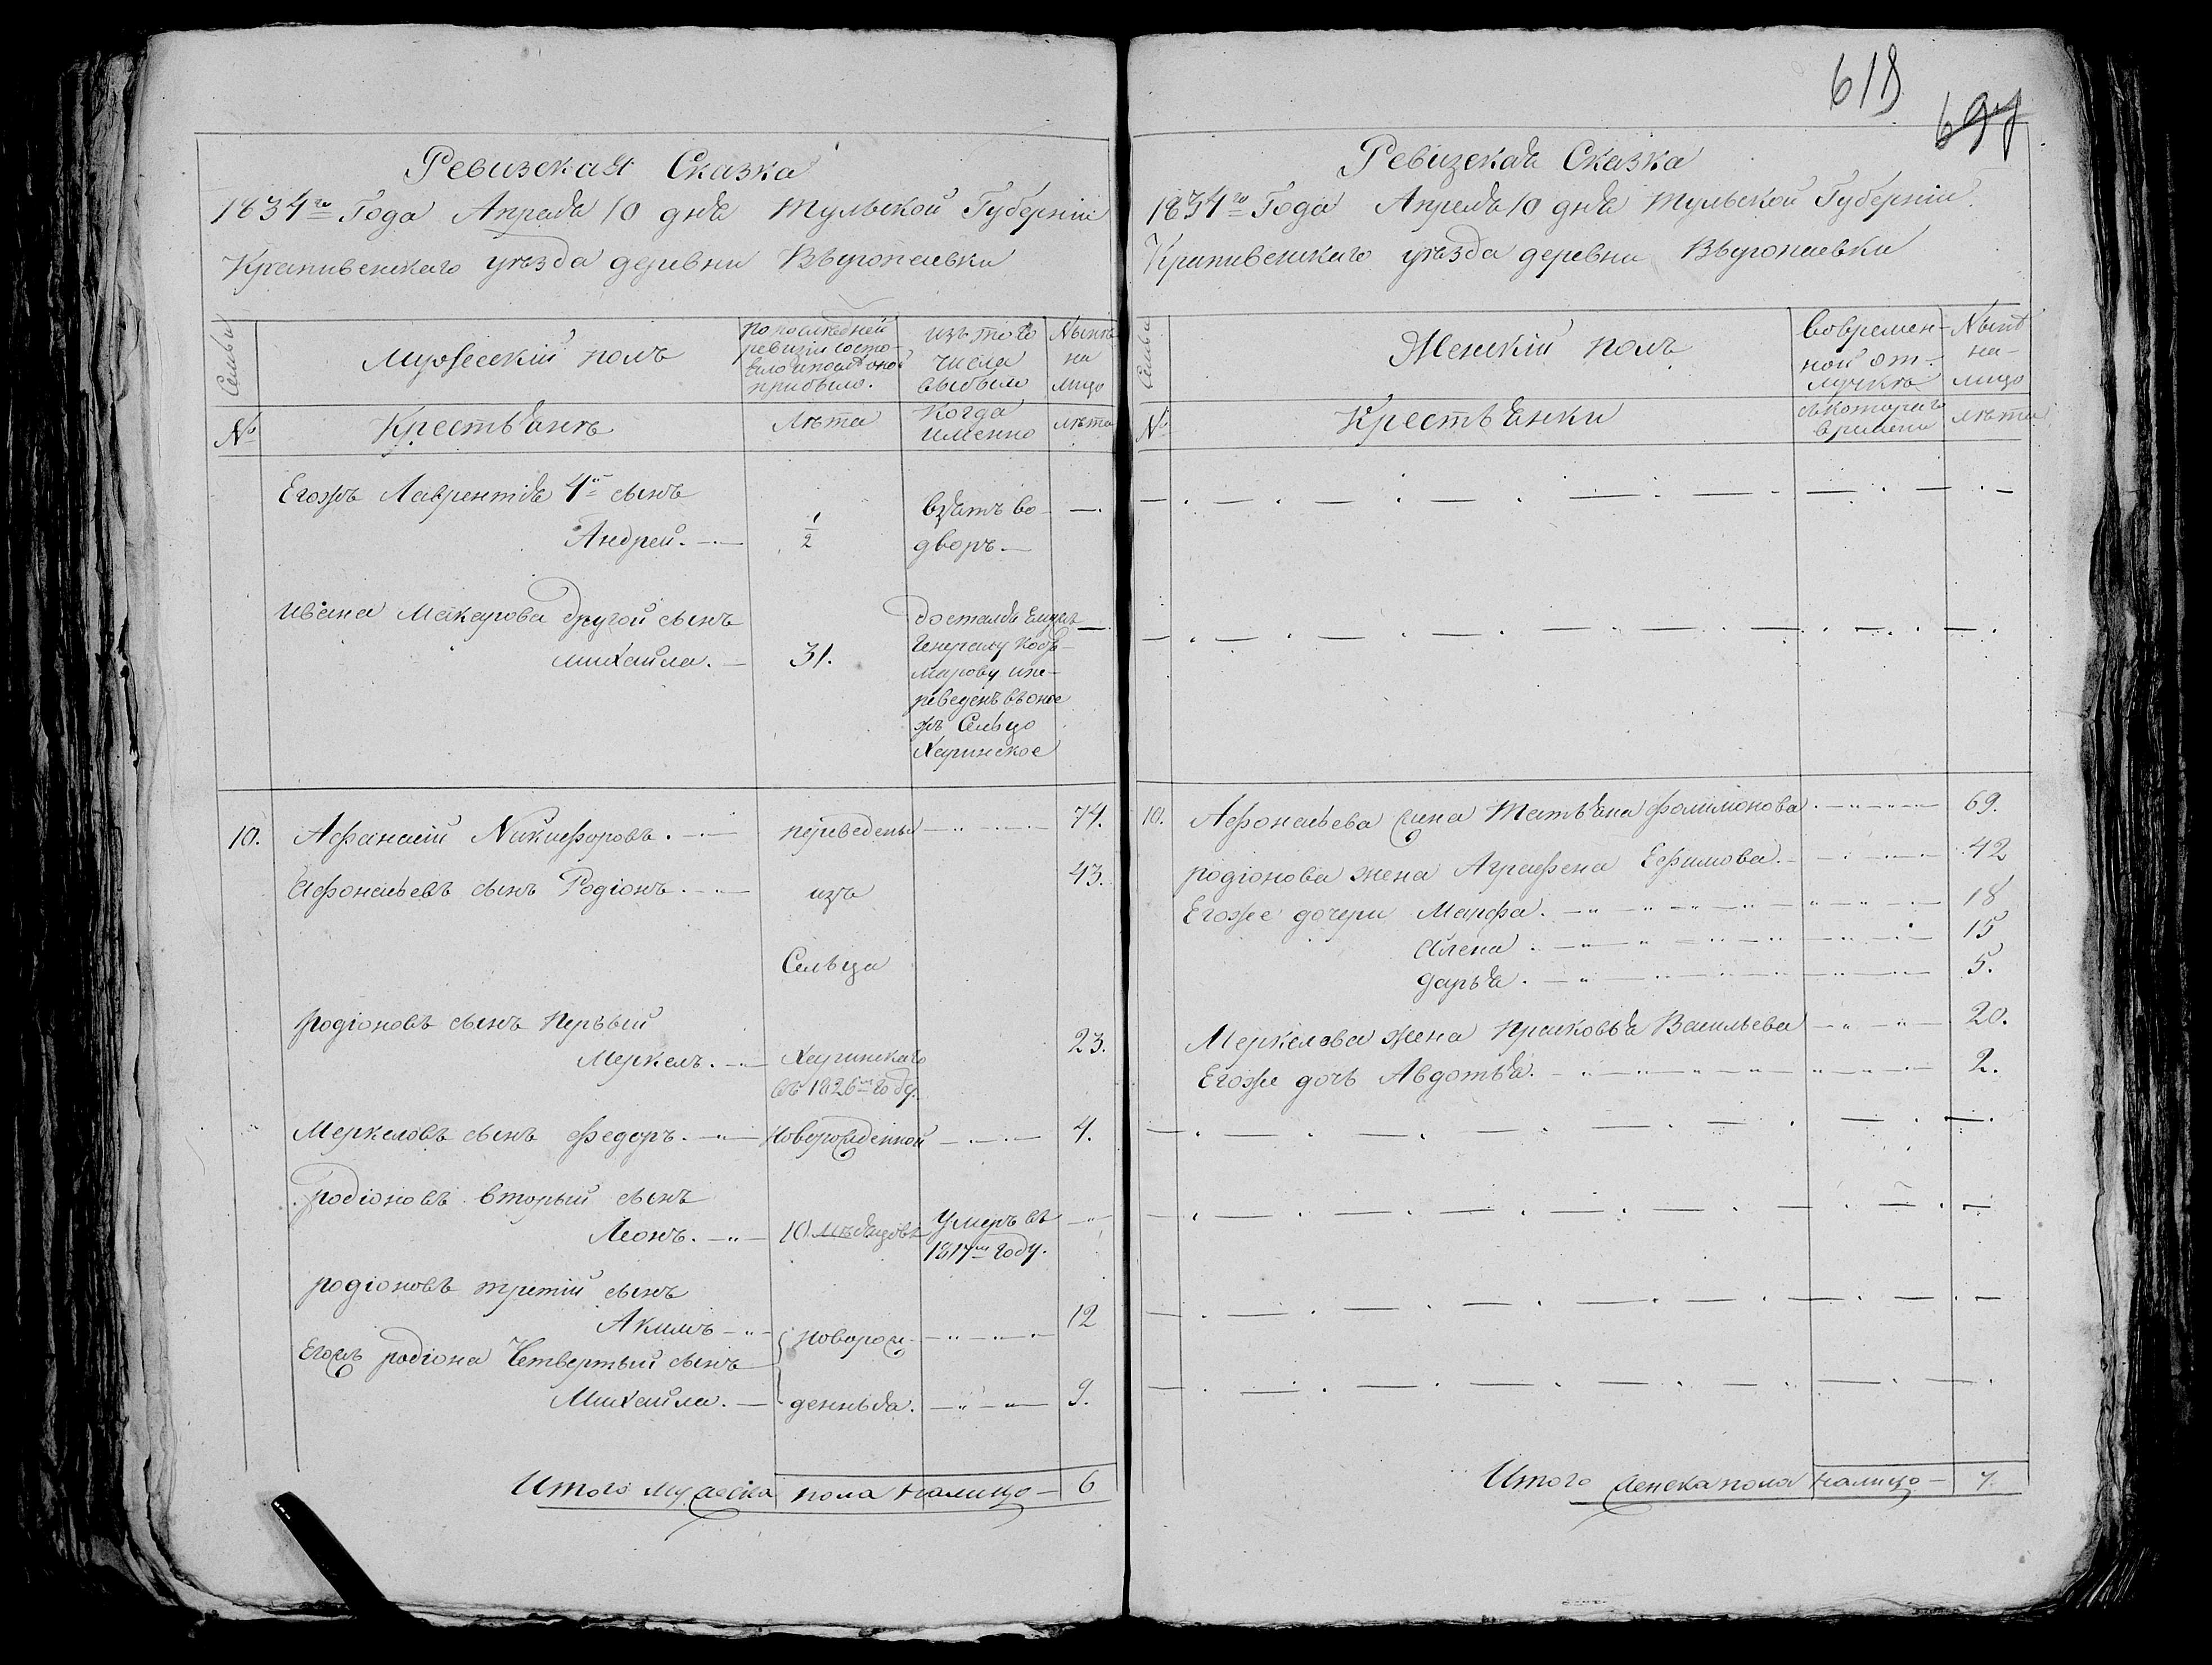 Ревизская Сказка
1834го Года Апреля 10 дня Тульской Губернiи
Крапивенскаго уезда деревни
Семьи
Мужескiй полъ
по последней
ревизiи состо-
яло и после оной
прибыло.
изъ того
числа
выбыло
Ныне
на
лицо
№
Крестьянъ
Лета
Когда
именно
лета
Егожъ Лаврентiя 4й сынъ
Андрей.
1/2
взятъ во
дворъ.
Ивана Макарова другой сынъ
михайла.
31.
досталъся
Генералу
и пе-
реведенъ въ оное
жъ Сельцо
Харинское
10.
Афанасiй Никифоровъ.
переведены
74.
Афонасьевъ сынъ Родiонъ.
изъ
43.
Сельца
родiоновъ сынъ первый
Меркелъ.
Харинскаго
въ 1826м году.
23.
Меркеловъ сынъ федоръ.
новорожденной
4.
родiоновъ вторый сынъ
Леонъ.
10. месяцовъ
Умеръ въ
1817м году.
родiоновъ третiй сынъ
Акимъ
новорож-
12
Егожъ родiона Четвертый сынъ
Михайла.
денныя.
9.
Итого мужеска пола налицо
6
618
697
Ревизская Сказка
1834го Года Апреля 10 дня Тульской Губернiи
Крапивенскаго уезда деревни
Семьи
Женскiй полъ
Во времен-
ной от-
лучке
Ныне
на-
лицо
№
Крестьянки
съ котораго
времени
лета
10.
Афонасьева жена Татьяна филимонова.
69.
родiонова жена Аграфена Ефимова.
42
Егоже дочери Марфа.
18
Алена.
15
дарья.
5.
Меркелова жена прасковья Васильева
20.
Егоже дочь Авдотья.
2.
Итого женска пола налицо
7.